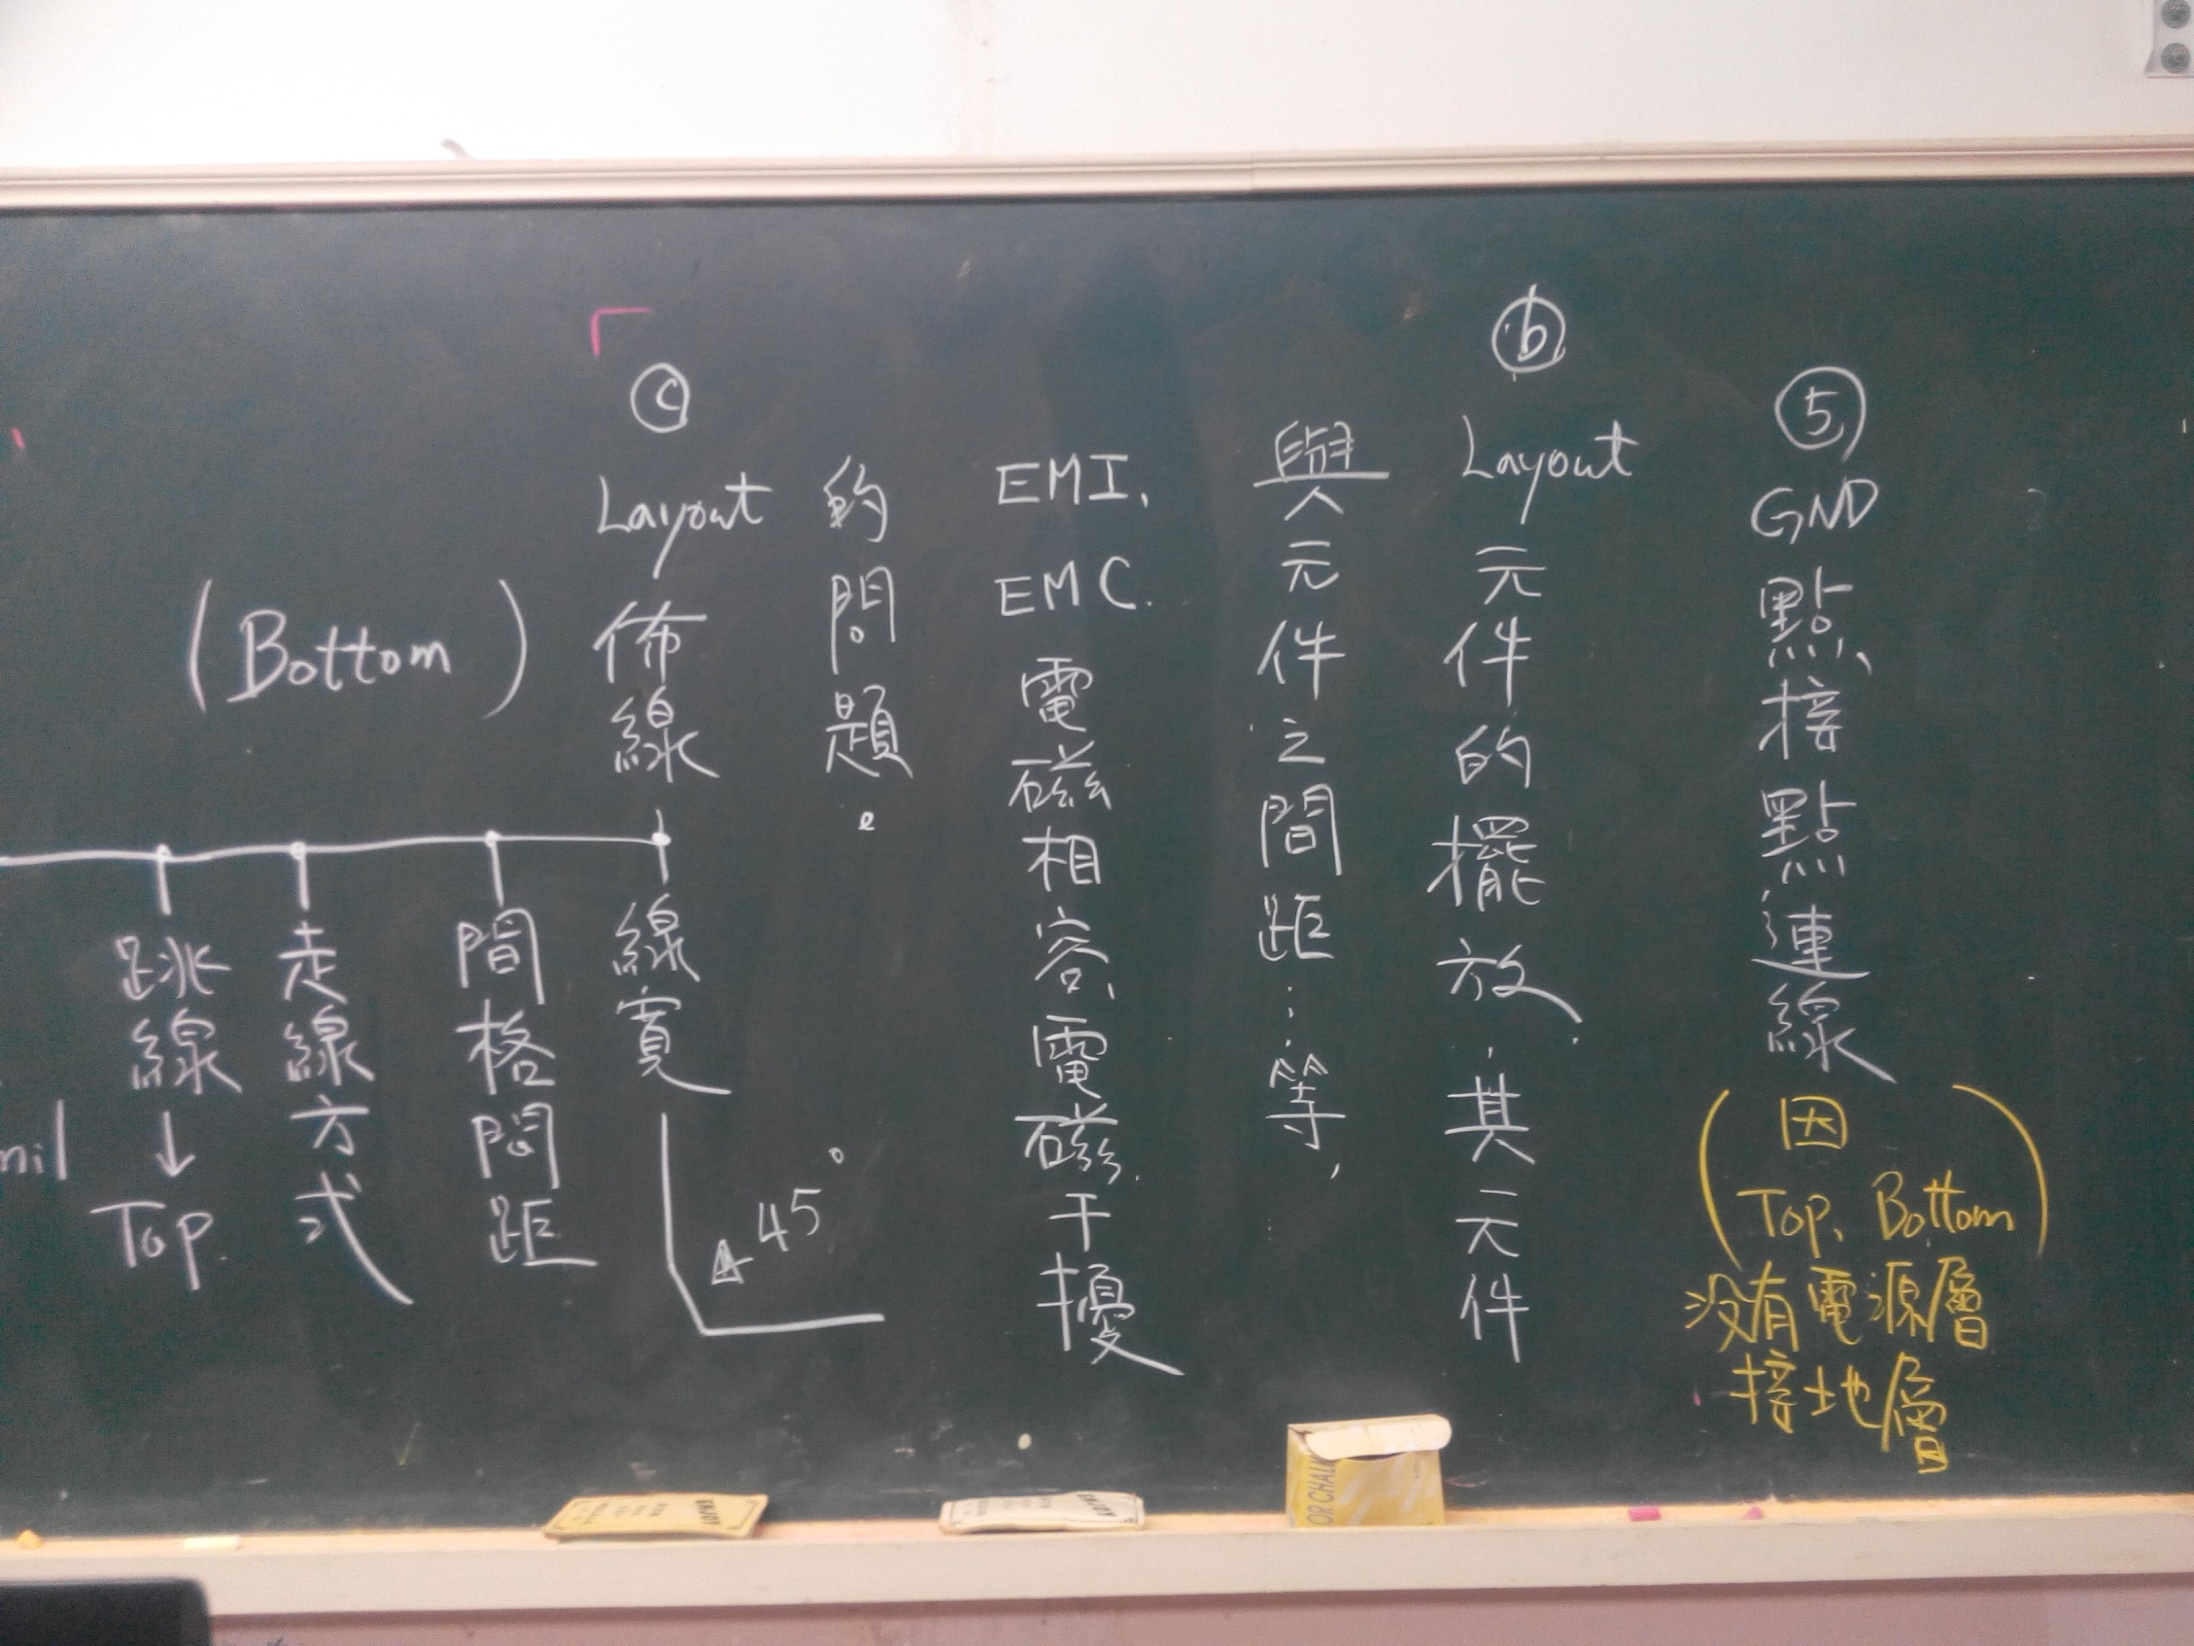 ⑤ GND點、接點連線
(因
Top、Bottom
沒有電源層
接地層)
ⓑ Layout元件的擺放.其元件
與元件之間距…等,
EMI、EMC.電磁相容、電磁干擾
的問題。
ⓒ Layout佈線
(Bottom)
線寬
45°
間格間距
走線方式
跳線↓Top.
mil
OR CHALK